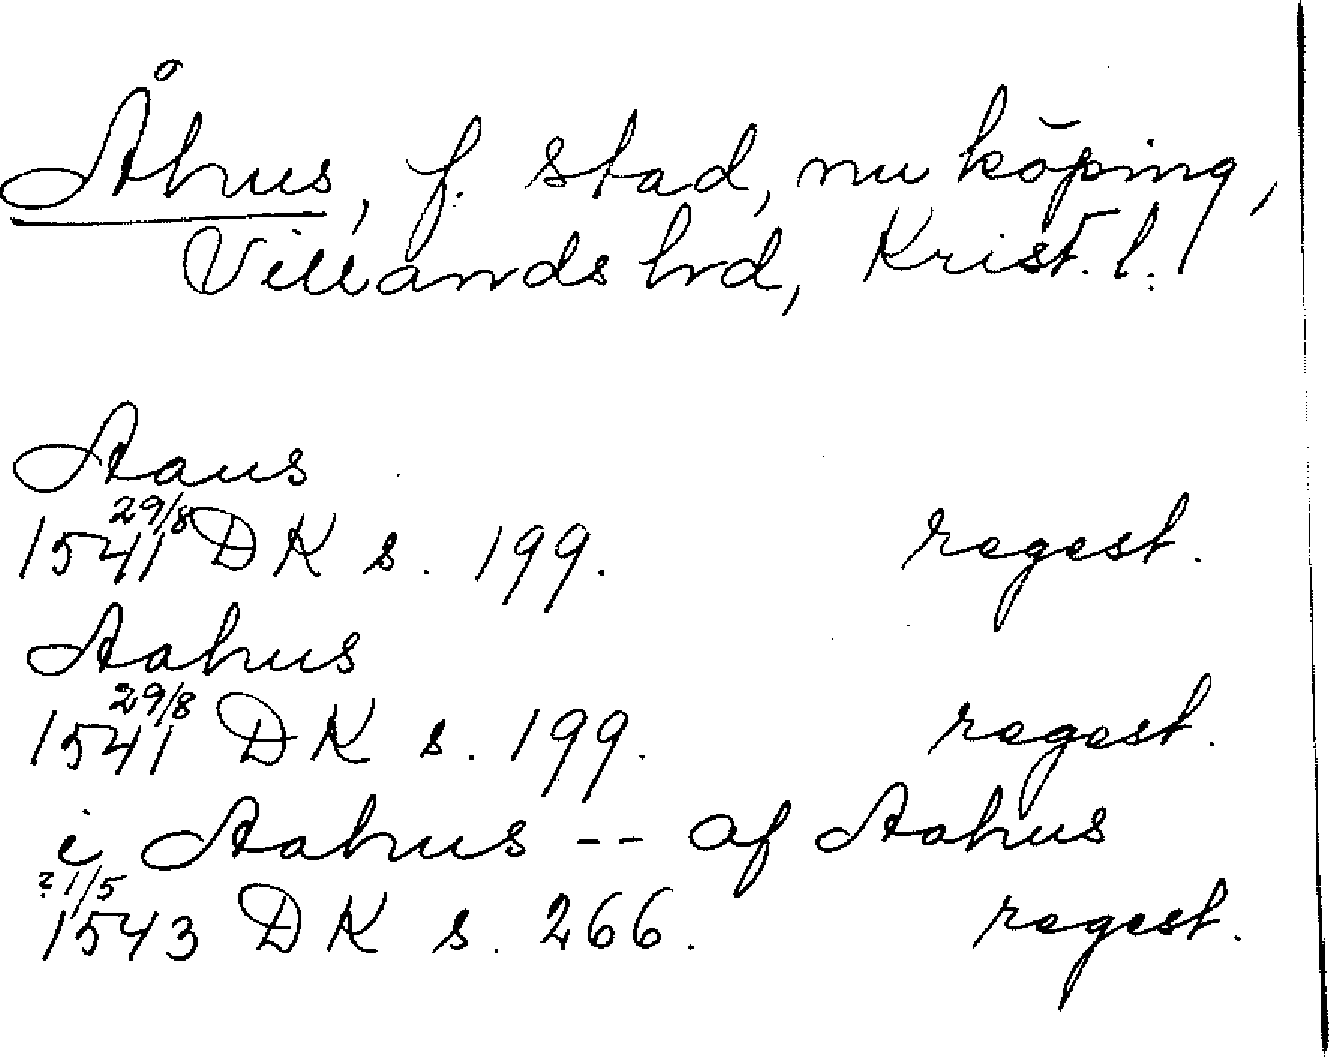 Åhus, f. stad, nu köping,
Villands hrd, Krist. l.
Aaus
29/8
1541 DK s. 199. regest.
Aahus
29/8
1541 DK s. 199. regest.
i Aahus -- af Aahus
? 1/5
1543 DK s. 266. regest.